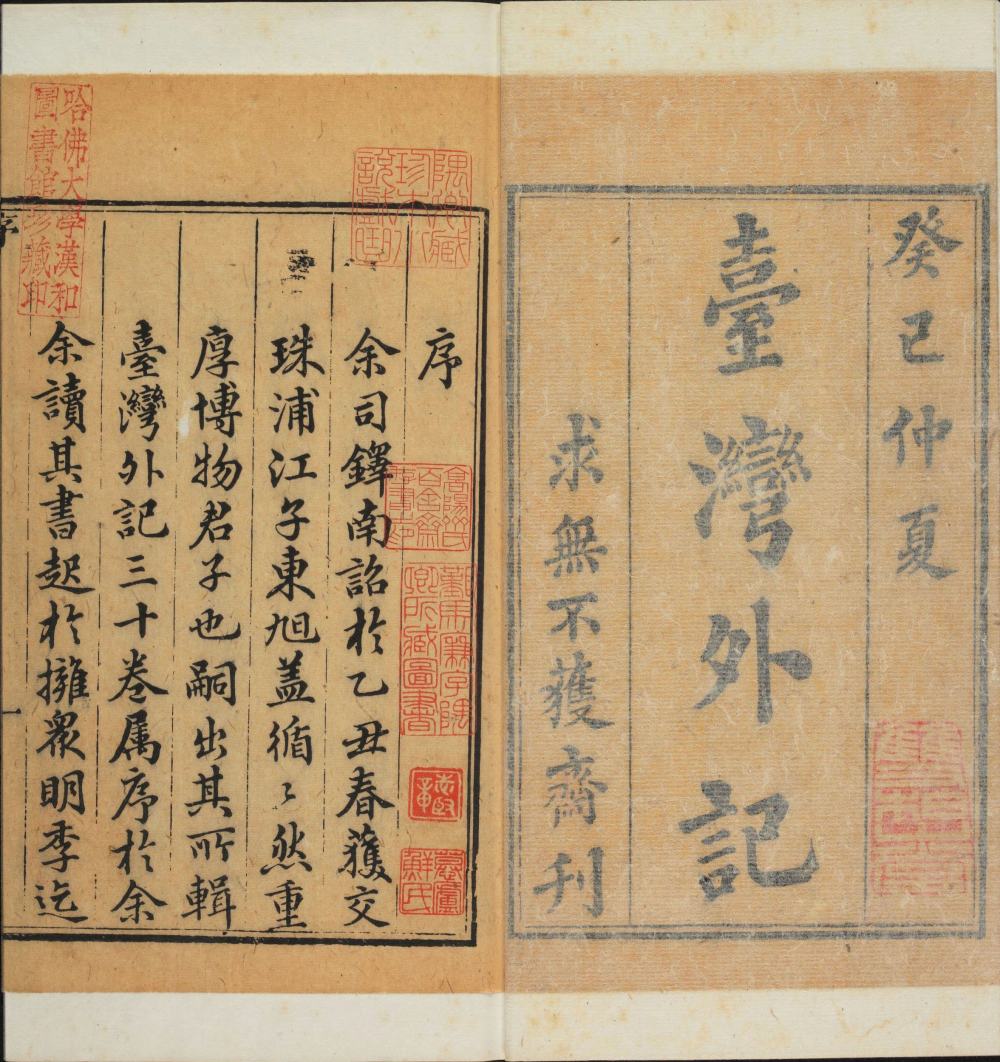 癸巳仲夏
臺灣外記
求無不獲齋刊
序
余司鐸南詔於乙丑春獲交
珠浦江子東旭盖循〻然重
厚博物君子也嗣出其所輯
臺灣外記三十卷属序於余
余讀其書起於擁衆明季迄
序
一
哈佛大學漢和
圖書館珍藏印